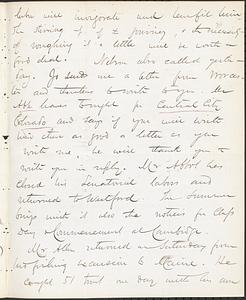 here will invigorate and benefit him
the driving &c. of Z journey, & the necessity
of roughing it a little will be worth a
good deal. Nelson also called yester-
day. Jo sends me a letter from Worces-
ter and threatens to write to you. Mr
Abb leaves tonight for Central City
Colorado and says if you will write
him then as good a letter as you
write me, he will thank you &
write you in reply. Mr Abbot has
closed his Senatorial labors and
returned to Westford. The summer
brings with it also the notices for Class
Day & Commencement at Cambridge.
Mr Allen returned on Saturday from
his fishing excursion to Maine. He
caught 51 trout one day with his own